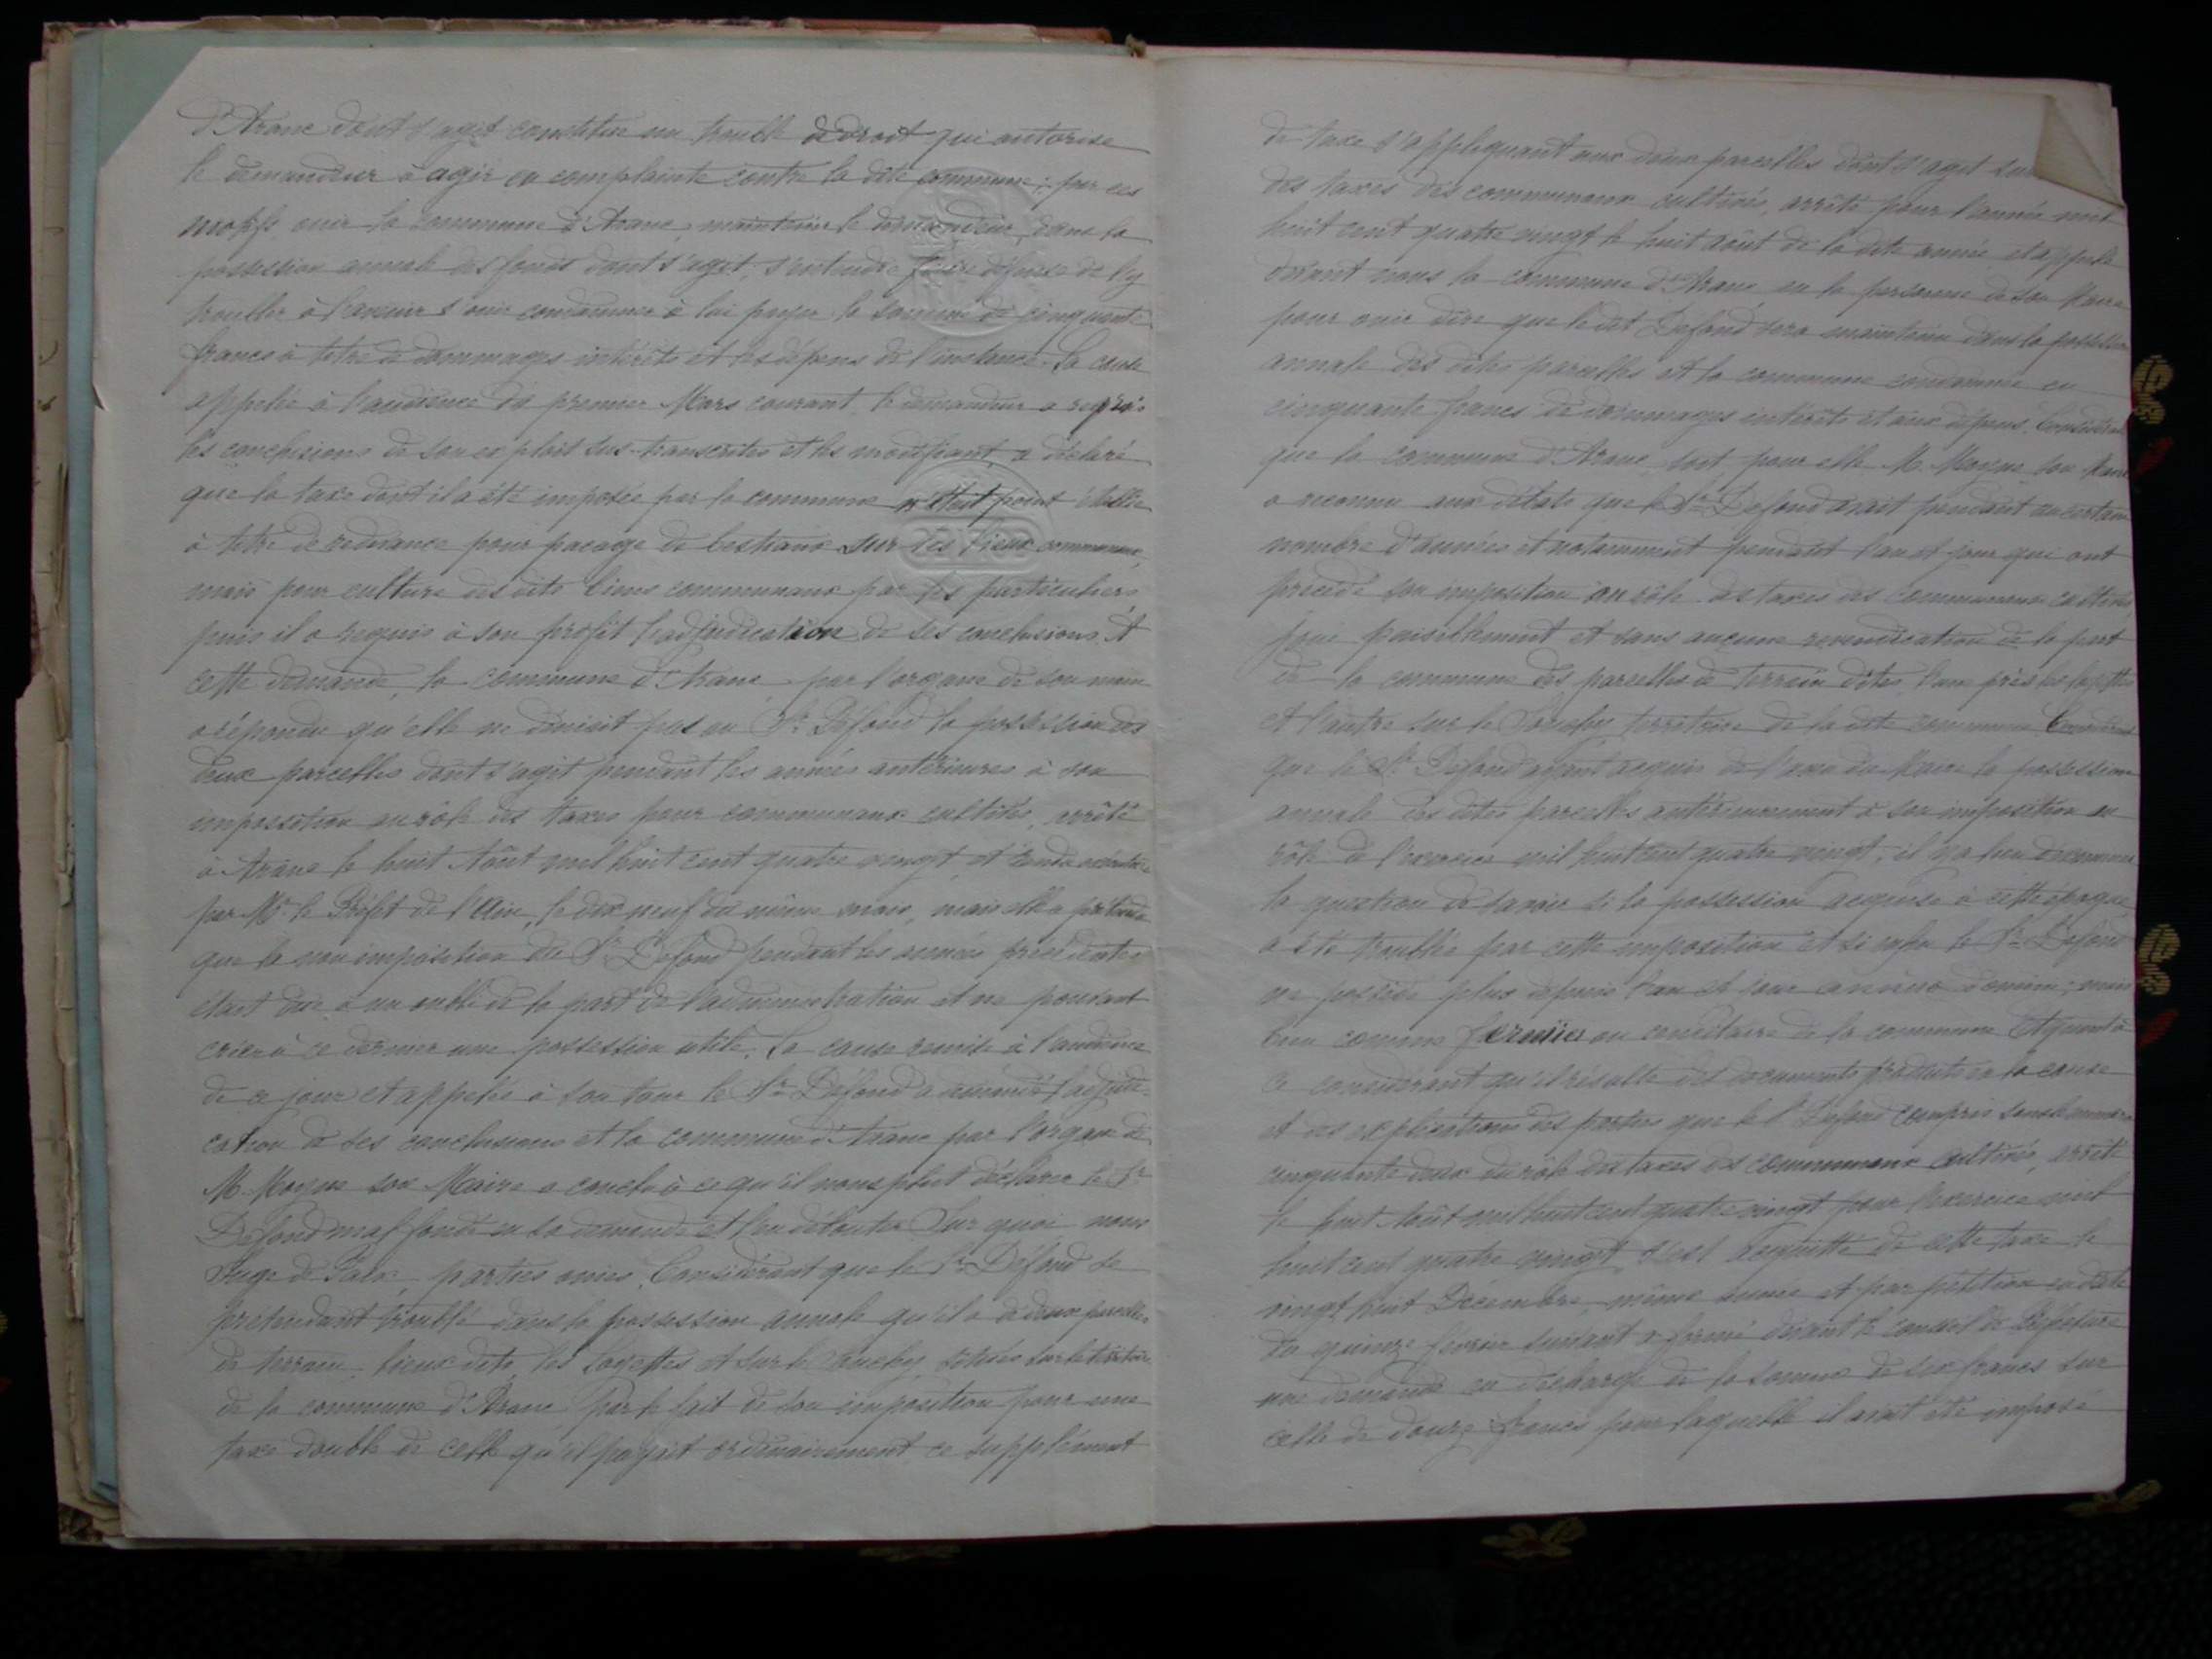 d'Aranc dont s'agit constitue un trouble de droit qui autorise
le demandeur à agir en complainte contre la dite commune; par ces
motifs ouir la commune d'Aranc, maintenir le demandeur, dans la
possession annale des fonds dont s'agit, s'entendre faire défense de l'y
troubler à l'avenir s'ouir condamner à lui payer la somme de cinquante
francs à titre de dommages intérêts et les dépens de l'instance. La cause
appelée à l'audience du premier Mars courant, le demandeur a repris
les conclusions de son exploit sus-transcrites et les modifiant a déclaré
que la taxe dont il a été imposée par la commune n'était point établie
à titre de redevance pour pacage de bestiaux sur les biens communaux,
mais pour culture des dits biens communaux par les particuliers
puis il a requis à son profit l'adjudication de ses conclusions. A
cette demande, la commune d'Aranc par l'organe de son maire
a répondu qu'elle ne déniait pas au Sr. Défond la possession des
deux parcelles dont s'agit pendant les années antérieures à son
imposition au rôle des taxes pour communaux cultivés, arrêté
à Aranc le huit Août mil huit cent quatre vingt, et rendu exécutoire
par Mr. le Préfet de l'Ain, le dix neuf du même mois, mais elle a prétendu
que la non imposition du Sr. Défond pendant les années précédentes
était due à un oubli de la part de l'administration et ne pouvant
créer à ce dernier une possession utile. La cause remise à l'audience
de ce jour et appelée à son tour le Sr. Défond a demandé l'adjudi-
cation de ses conclusions et la commune d'Aranc par l'organe de
M. Moyne son Maire a conclu à ce qu'il nous plut déclarer le Sr.
Défond mal fondé en sa demande et l'en débouter Sur quoi nous
Juge de Paix, parties ouies, Considérant que le Sr. Défond se
prétendant troublé dans la possession annale qu'il a de deux parcelles
de terrain, lieux dits, les Loyettes et sur le situées sur le territoire
de la commune d'Aranc, par le fait de son imposition pour une
taxe double de celle qu'il payait ordinairement, ce supplément
de taxe s'appliquant aux deux parcelles dont s'agit sur
des taxes des communaux cultivés, arrêté pour l'année mil
huit cent quatre vingt le huit août de la dite année, et appelé
devant nous la commune d'Aranc en la personne de son Maire
pour ouir dire que le dit Défond sera maintenu dans la possession
annale des dites parcelles et la commune condamnée en
cinquante francs de dommages intérêts et aux dépens. Considérant
que la commune d'Aranc, soit pour elle M. Moyne son Maire
a reconnu aux débats que le Sr. Défond avait pendant un certain
nombre d'années et notamment pendant l'an et jour qui ont
précédé son imposition au rôle des taxes des communaux cultivés
joui paisiblement et sans aucune revendication de la part
de la commune des parcelles de terrain dites l'une près les
et l'autre sur le territoire de la dite commune Considérant
que le Sr. Défond ayant acquis de l'aveu du Maire la possession
annale des dites parcelles antérieurement à son imposition au
rôle de l'exercice mil huit cent quatre vingt, il y a lieu d'examiner
la question de savoir si la possession acquise à cette époque
a été troublée par cette imposition et si enfin le Sr. Défond
ne possède plus depuis l'an et jour animo domini; mais
bien comme fermier ou censitaire de la commune Et quant à
ce considérant qu'il résulte des documents produits en la cause
et des explications des parties que le Sr. Défond compris sous le numéro
cinquante deux du rôle des taxes des communaux cultivés, arrêté
le huit Août mil huit cent quatre vingt pour l'exercice mil
huit cent quatre vingt, s'est acquitté de cette taxe le
vingt huit Décembre, même année et par pétition en date
du quinze février suivant a formé devant le conseil de Préfecture
une demande en décharge de la somme de six francs sur
celle de douze francs pour laquelle il avait été imposé